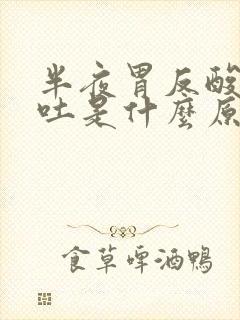 半夜胃反酸
吐是什麼原
食草啤酒鴨